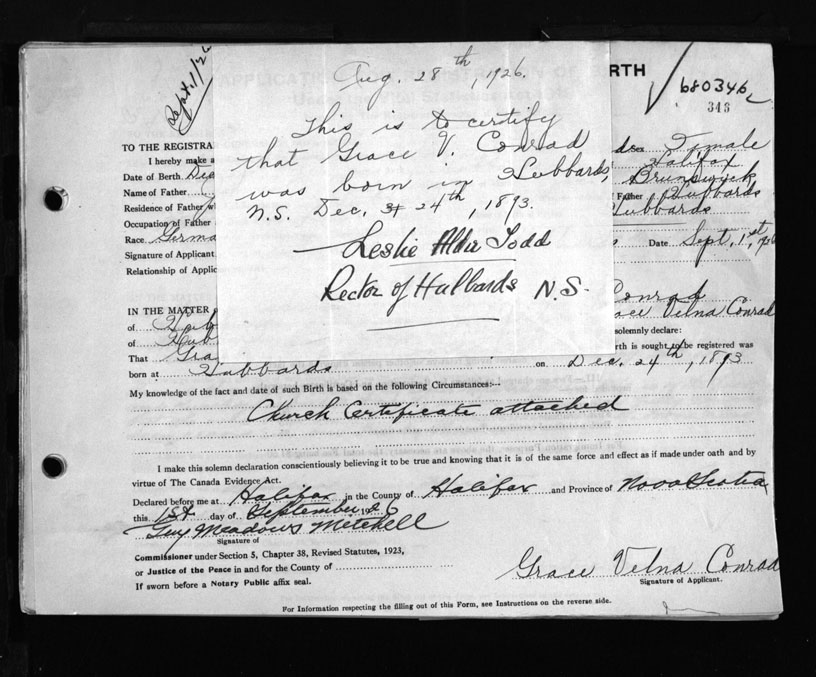 Sept. 1/26
RTH
680346
348
Aug. 28th, 1926.
This is to certify
that Grace V. Conrad
was born in Hubbards
N.S. Dec. 24th, 1893.
Leslie Aldie Todd
Rector of Hubbards N.S.
TO THE REGISTRA
I hereby make a
Sex Female
Halifax
Date of Birth Dec
Brunswick
Name of Father
Father Hubbards
Residence of Father
Hubbards
Occupation of Father
Race Germa
Date Sept. 1st, 1926
Signature of Applicant
Relationship of Applic
Conrad
IN THE MATTER
Grace Velna Conrad
of
of Hub
solemnly declare:
That Gra
irth is sought to be registered was
born at Hubbards on Dec. 24th, 1893
My knowledge of the fact and date of such Birth is based on the following Circumstances:—
Church Certificate attached
I make this solemn declaration conscientiously believing it to be true and knowing that it is of the same force and effect as if made under oath and by
virtue of The Canada Evidence Act.
Declared before me at Halifax in the County of Halifax and Province of Nova Scotia
this 1st day of September 1926
Guy Meadows Mitchell
Signature of
Commissioner under Section 5, Chapter 38, Revised Statutes, 1923,
or Justice of the Peace in and for the County of
Grace Velna Conrad
If sworn before a Notary Public affix seal.
Signature of Applicant.
For Information respecting the filling out of this Form, see Instructions on the reverse side.